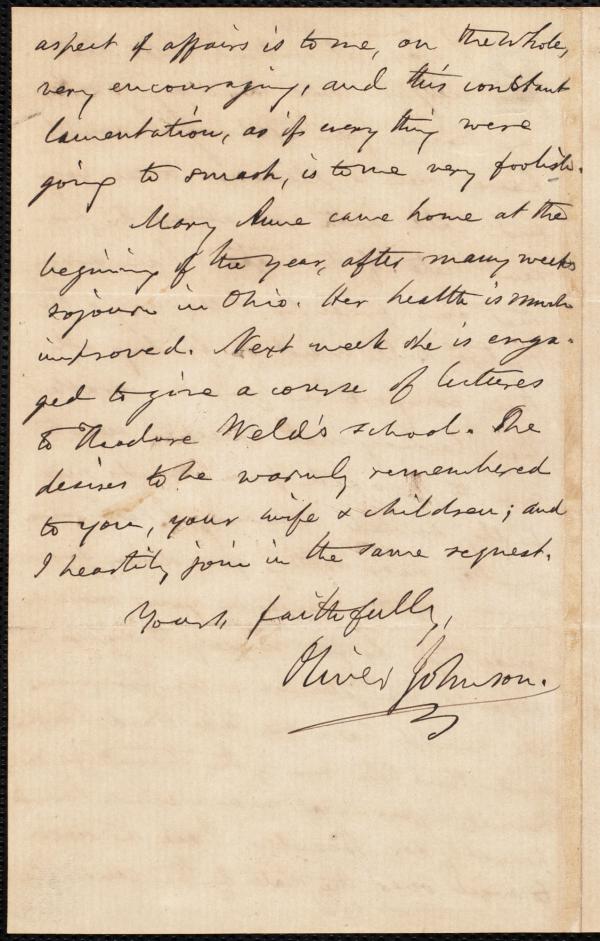 aspect of affairs is to me, on the whole,
very encouraging, and this constant
lamentation, as if every thing were
going to smash, is to me very foolish.
Mary Anne came home at the
begining of the year, after many weeks
sojourn in Ohio. Her health is much
improved. Next week she is enga-
ged to give a course of lectures
to Theodore Weld's school. She
desires to be warmly remembered
to you, your wife & children; and
I heartily join in the same request.
Yours faithfully,
Oliver Johnson.